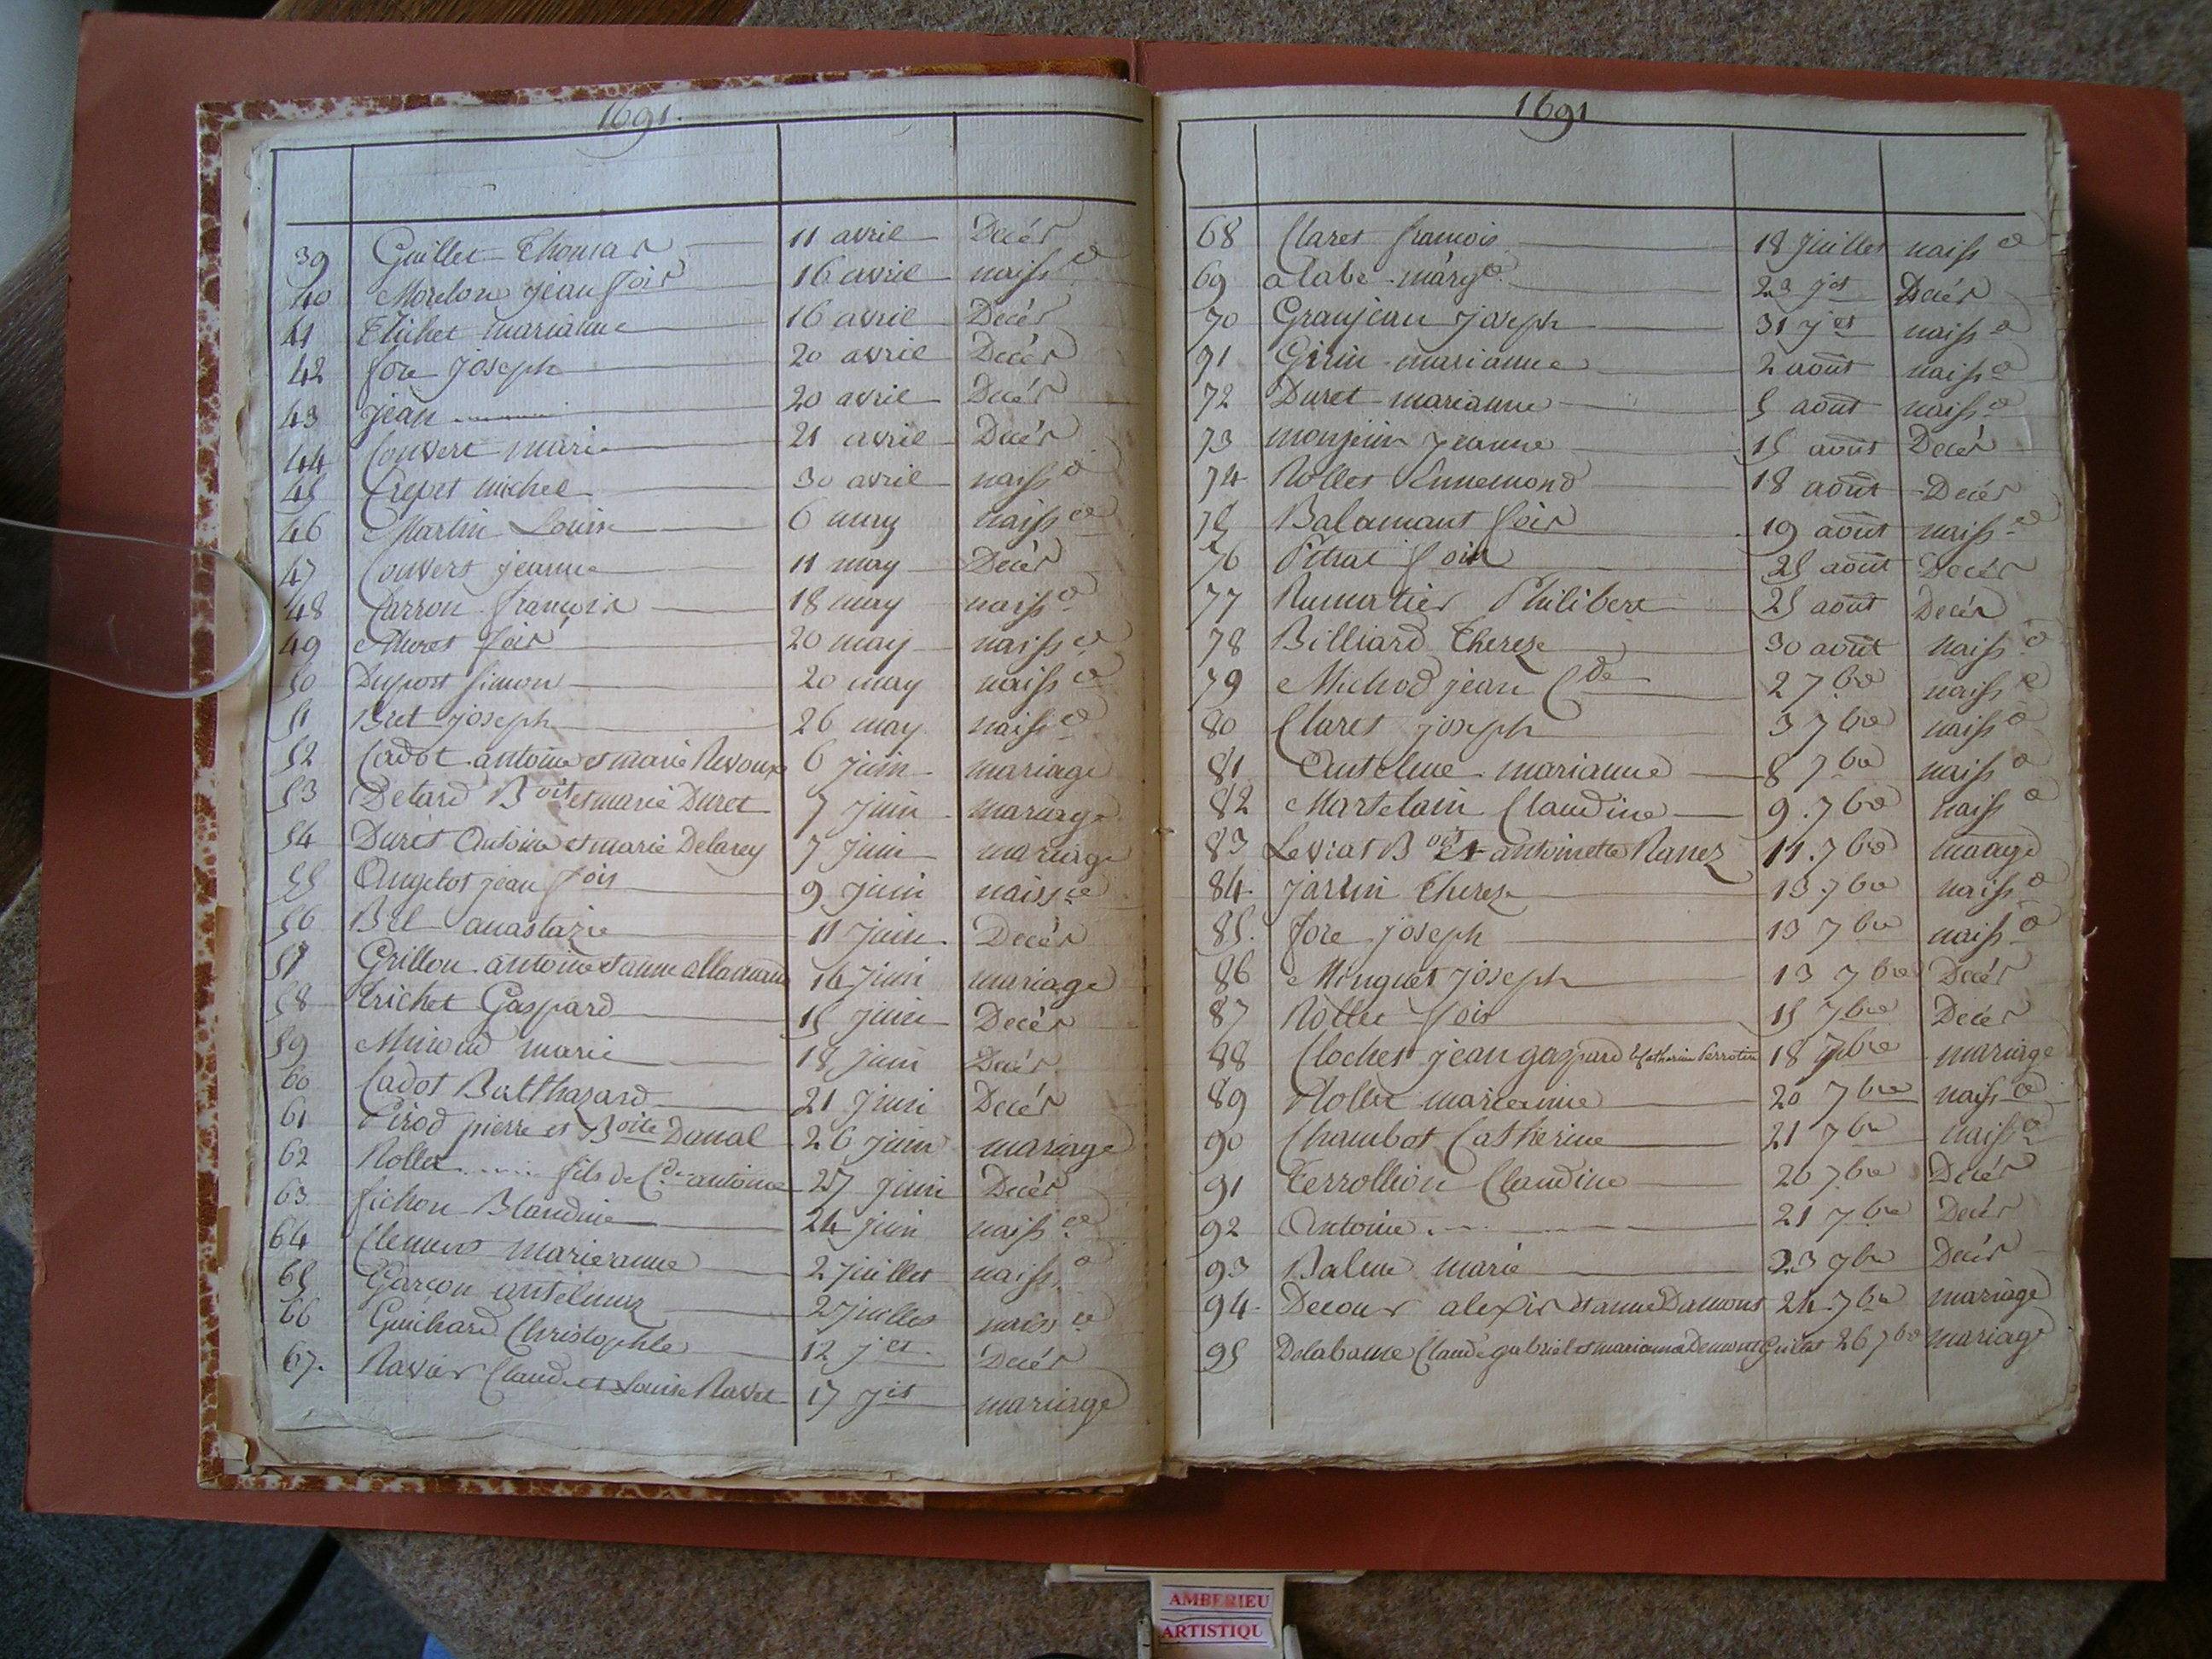 1691.
39 Guillet Thomas 11 avril Decés
40 Morelon jean fois 16 avril naissce
41 Trichet marianne 16 avril Decés
42 fore Joseph 20 avril Decés
43 jean 20 avril Decés
44 Convert marie 21 avril Decés
45 Crepet michel 30 avril naissce
46 Martin Louise 6 may naissce
47 Convert jeanne 11 may Decés
48 Carron francois 18 may naissce
49 fois 20 may naissce
50 Duport simon 20 may naissce
51 Bret joseph 26 may naissce
52 Cadot antoine et marie Revoux 6 juin mariage
53 Detard Boit et marie Duret 7 juin mariage
54 Duret Antoine et marie Delarey 7 juin mariage
55 Angelot jean fois 9 juin naissce
56 Bel anastazie 11 juin Decés
57 Grillon antoine et anne allamand 16 juin mariage
58 trichet Gaspard 15 juin Decés
59 marie 18 juin Decés
60 Cadot Balthazard 21 juin Decés
61 Pirod pierre et Boite Danal 26 juin mariage
62 Rollet fils de Cde antoine 27 juin Decés
63 fichon Blandine 24 juin naissce
64 Clement marieanne 2 juillet naissce
65 Garcon antelmez 2 juillet naissce
66 Guichard Christophle 12 jet Decés
67. Ravier Claude et Louise Ravet 17 jet mariage
1691
68 Claret francois 18 juillet naissce
69 alabe margte 23 jet Decés
70 Granjean joseph 31 jet naissce
71 Girin marianne 2 août naissce
72 Duret marianne 5 août naissce
73 monjein jeanne 15 août Decés
74 Rollet Ennemond 18 août Decés
75 Balamant fois 19 août naissce
76 Pitrat fois 25 août Decés
77 Philibert 25 août Decés
78 Billiard Thereze 30 août naissce
79 Michod jean Cde 2 7bre naissce
80 Claret joseph 3 7bre naissce
81 Antelme marianne 8 7bre naissce
82 Martelain Claudine 9. 7bre naissce
83 Leviat Boit et antoinette Ranez 11. 7bre maage
84. jarrin Thereze 13. 7bre naissce
85. fore joseph 13 7bre naissce
86 Minguet joseph 13 7bre Decés
87 Rollet fois 15 7bre Decés
88 Clochet jean gaspard et Catherine Perrotin 18 7bre mariage
89 Rollet marieanne 20 7bre naissce
90 Chambot Catherine 21 7bre naissce
91 Terrollion Claudine 20 7bre Decés
92 Antoine 21 7bre Decés
93 Balme marie 23 7bre Decés
94. Decour alexis et anne Damont 24. 7bre mariage
95 Delabame Claude gabriel et marianne Demont 26 7bre mariage
AMBERIEU
ARTISTIQU